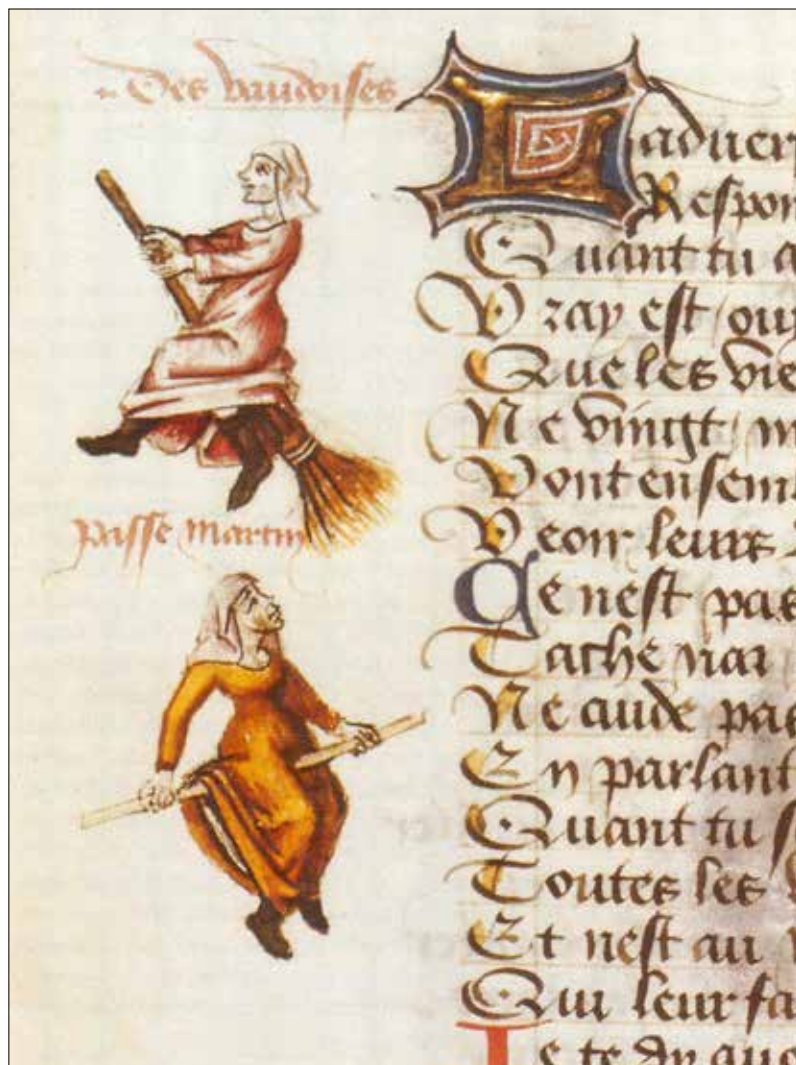 Des vaudoises
passe martin
Laduer
Respon
Quant tu a
Vray est / ouy
Que les vie
Ne vingt / m
Vont ensem
Veoir leurs
Ce nest pas
Tache nar
Ne cuide pas
En parlant
Quant tu s
Toutes les
Et nest au
Qui leur fa
Je te dy que